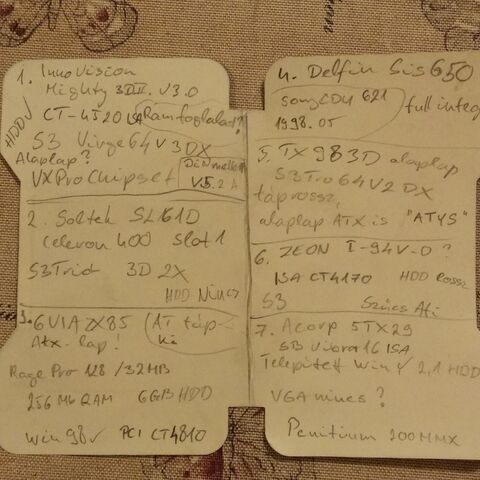 1. InnoVision
Mighty 3D II. V3.0
HDD
CT-4520 ISA Ram foglalat?
S3 Virge 64V 3DX
Alaplap?
VXPro Chipset
DiN mellett
V5.2A
2. Soltek SL61D
Celeron 400 Slot 1
S3 Trio 3D 2X
HDD Nincs
3. 6VIA ZX85 AT táp
Atx-lap! ki
Rage Pro 128 /32MB
256 Mb RAM 6GB HDD
Win 98 PCI CT4810
4. Delfin SiS 650
Sony CDU 621 full integ
1998.05
5. TX 983D alaplap
S3 Trio 64V2 DX
táp rossz,
alaplap ATX is "ATYS"
6. ZEON I-94V-0?
ISA CT4170 HDD rossz
S3 Szűcs Ati
7. Acorp 5TX29
SB Vibra 16 ISA
Telepített Win 2,1 HDD
VGA nincs?
Penitium 200MMX